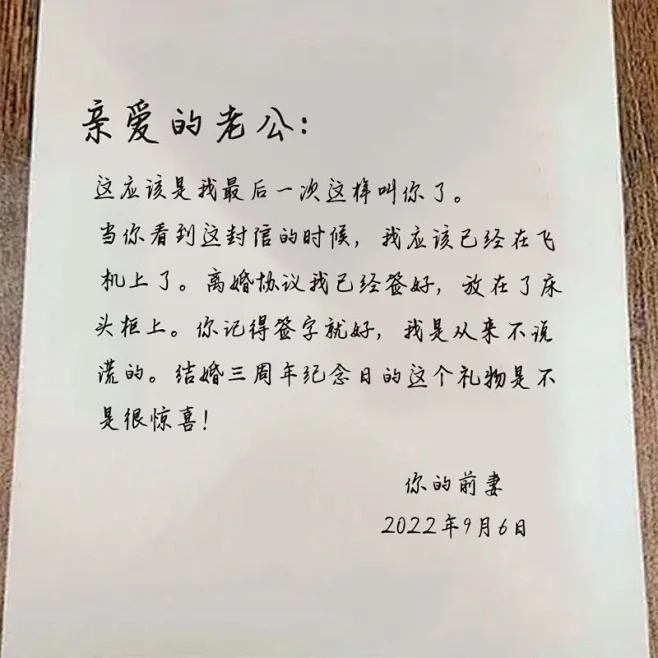 亲爱的老公:
这应该是我最后一次这样叫你了。
当你看到这封信的时候，我应该已经在飞
机上了。离婚协议我已经签好，放在了床
头柜上。你记得签字就好，我是从来不说
谎的。结婚三周年纪念日的这个礼物是不
是很惊喜！
你的前妻
2022年9月6日